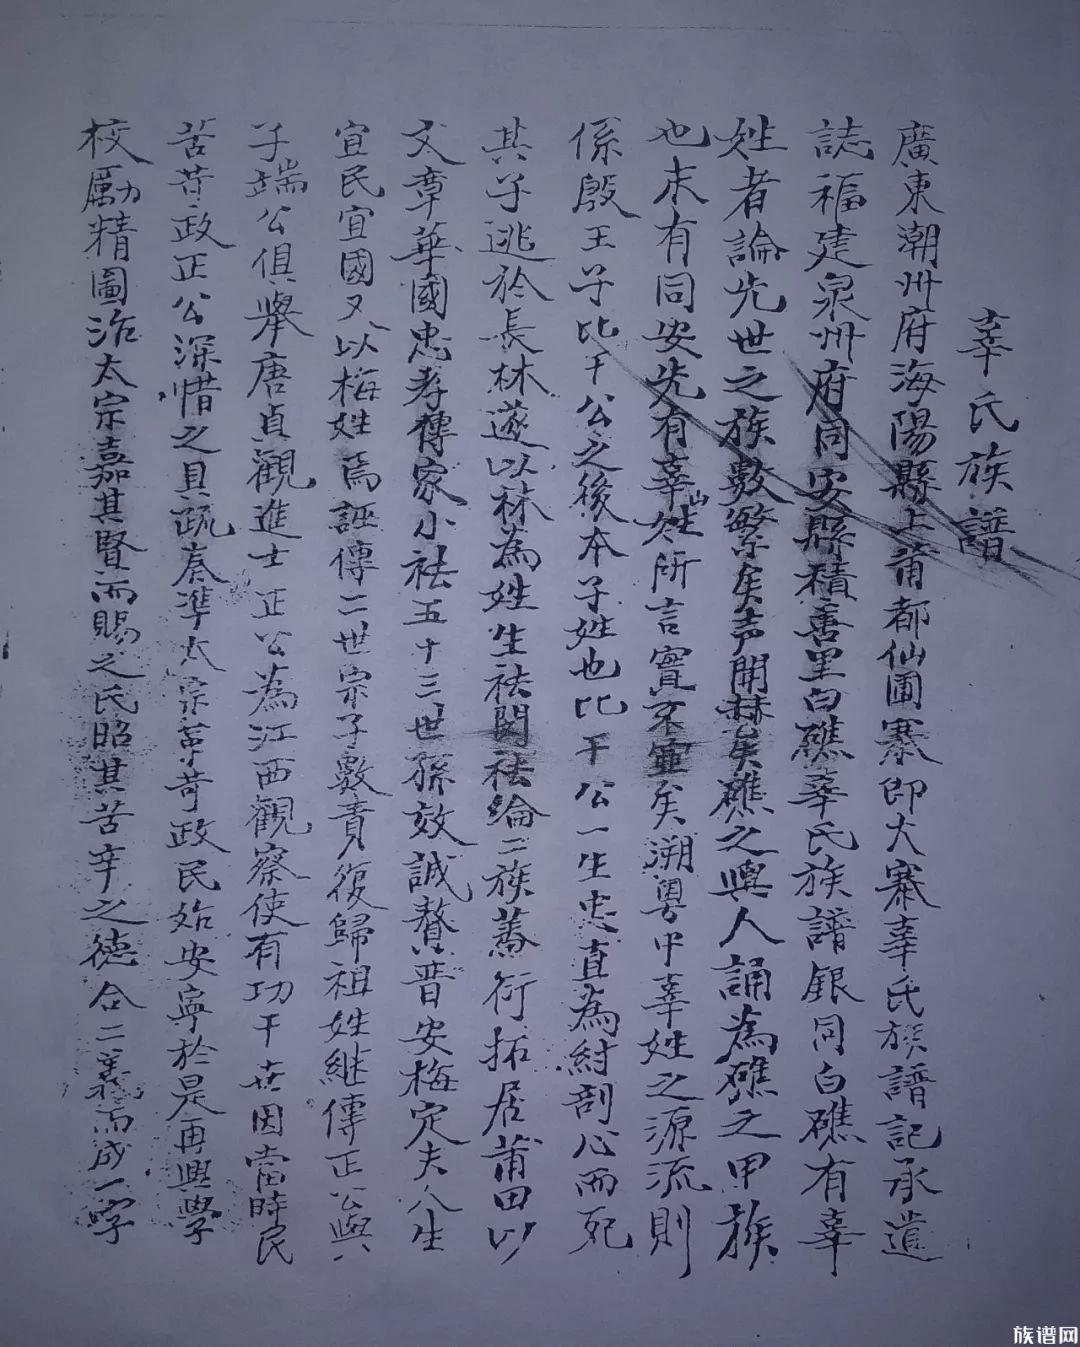 辜氏族譜
廣東潮州府海陽縣上莆都仙圃寨即大寨辜氏族譜記承遺
誌福建泉州府同安縣積善里白礁辜氏族譜銀同白礁有辜
姓者論先世之族數繁矣声開赫矣礁之興人誦為礁之甲族
也未有同安先有辜山姓所言實不虛矣溯粵中辜姓之源流則
係殷王子比干公之後本子姓也比干公一生忠直為紂剖心而死
其子逃於長林遂以林為姓生祛閎祛綸二族蕃衍拓居莆田以
文章華國忠孝傳家小祛五十三世孫效誠贅晋安梅定夫人生
宜民宜國又以梅姓焉誣傳二世宗子數責復歸祖姓継傳正公與
子端公俱舉唐貞觀進士正公為江西觀察使有功于世因當時民
苦苛政正公深惜之具疏奏準太宗革苛政民始安寧於是再興學
校勵精圖治太宗嘉其賢而賜之氏昭其苦辛之德合二義而成一字
族谱网